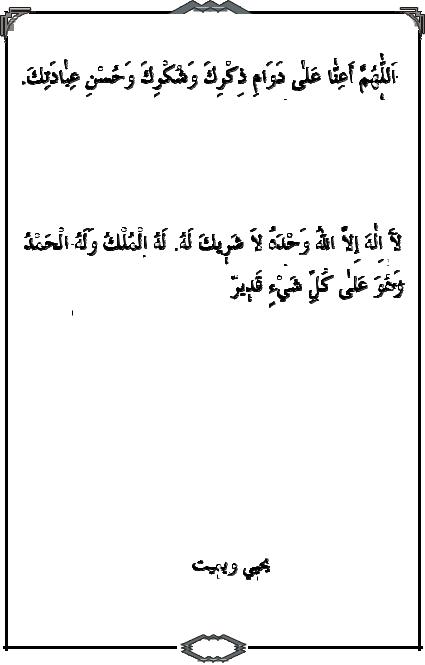 اَللّٰهُمَّ أَعِنَّا عَلٰى دَوَامِ ذِكْرِكَ وَشُكْرِكَ وَحُسْنِ عِبَادَتِكَ.
لَآ اِلٰهَ إِلاَّ اللهُ وَحْدَهُ لاَ شَرِيكَ لَهُ. لَهُ الْمُلْكُ وَلَهُ الْحَمْدُ
وَهُوَ عَلٰى كُلِّ شَيْءٍ قَدِيرٌ
يحيي ويميت